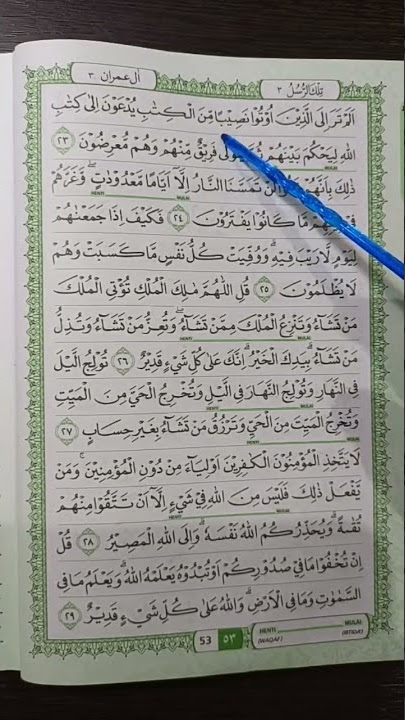 اٰل عمران ٣
تِلْكَ الرُّسُلُ ٣
اَلَمْ تَرَ اِلَى الَّذِيْنَ اُوْتُوْا نَصِيْبًا مِّنَ الْكِتٰبِ يُدْعَوْنَ اِلٰى كِتٰبِ
اللّٰهِ لِيَحْكُمَ بَيْنَهُمْ فَرِيْقٌ مِّنْهُمْ وَهُمْ مُّعْرِضُوْنَ ٢٣
ذٰلِكَ بِاَنَّهُمْ تَمَسَّنَا النَّارُ اِلَّآ اَيَّامًا مَّعْدُوْدٰتٍ ۖ وَّغَرَّهُمْ
مَّا كَانُوْا يَفْتَرُوْنَ ٢٤ فَكَيْفَ اِذَا جَمَعْنٰهُمْ
لِيَوْمٍ لَّا رَيْبَ فِيْهِ ۗ وَوُفِّيَتْ كُلُّ نَفْسٍ مَّا كَسَبَتْ وَهُمْ
لَا يُظْلَمُوْنَ ٢٥ قُلِ اللّٰهُمَّ مٰلِكَ الْمُلْكِ تُؤْتِى الْمُلْكَ
مَنْ تَشَاۤءُ وَتَنْزِعُ الْمُلْكَ مِمَّنْ تَشَاۤءُ ۖ وَتُعِزُّ مَنْ تَشَاۤءُ وَتُذِلُّ
مَنْ تَشَاۤءُ ۗ بِيَدِكَ الْخَيْرُ ۗ اِنَّكَ عَلٰى كُلِّ شَيْءٍ قَدِيْرٌ ٢٦ تُوْلِجُ الَّيْلَ
فِى النَّهَارِ وَتُوْلِجُ النَّهَارَ فِى الَّيْلِ وَتُخْرِجُ الْحَيَّ مِنَ الْمَيِّتِ
وَتُخْرِجُ الْمَيِّتَ مِنَ الْحَيِّ وَتَرْزُقُ مَنْ تَشَاۤءُ بِغَيْرِ حِسَابٍ ٢٧
لَا يَتَّخِذِ الْمُؤْمِنُوْنَ الْكٰفِرِيْنَ اَوْلِيَاۤءَ مِنْ دُوْنِ الْمُؤْمِنِيْنَ ۚ وَمَنْ
يَّفْعَلْ ذٰلِكَ فَلَيْسَ مِنَ اللّٰهِ فِيْ شَيْءٍ اِلَّآ اَنْ تَتَّقُوْا مِنْهُمْ
تُقٰىةً ۗ وَيُحَذِّرُكُمُ اللّٰهُ نَفْسَهٗ ۗ وَاِلَى اللّٰهِ الْمَصِيْرُ ٢٨ قُلْ
اِنْ تُخْفُوْا مَا فِيْ صُدُوْرِكُمْ اَوْ تُبْدُوْهُ يَعْلَمْهُ اللّٰهُ ۗ وَيَعْلَمُ مَا فِى
السَّمٰوٰتِ وَمَا فِى الْاَرْضِ ۗ وَاللّٰهُ عَلٰى كُلِّ شَيْءٍ قَدِيْرٌ ٢٩
53 ٥٣
HENTI MULAI
(WAQAF) (IBTIDA')